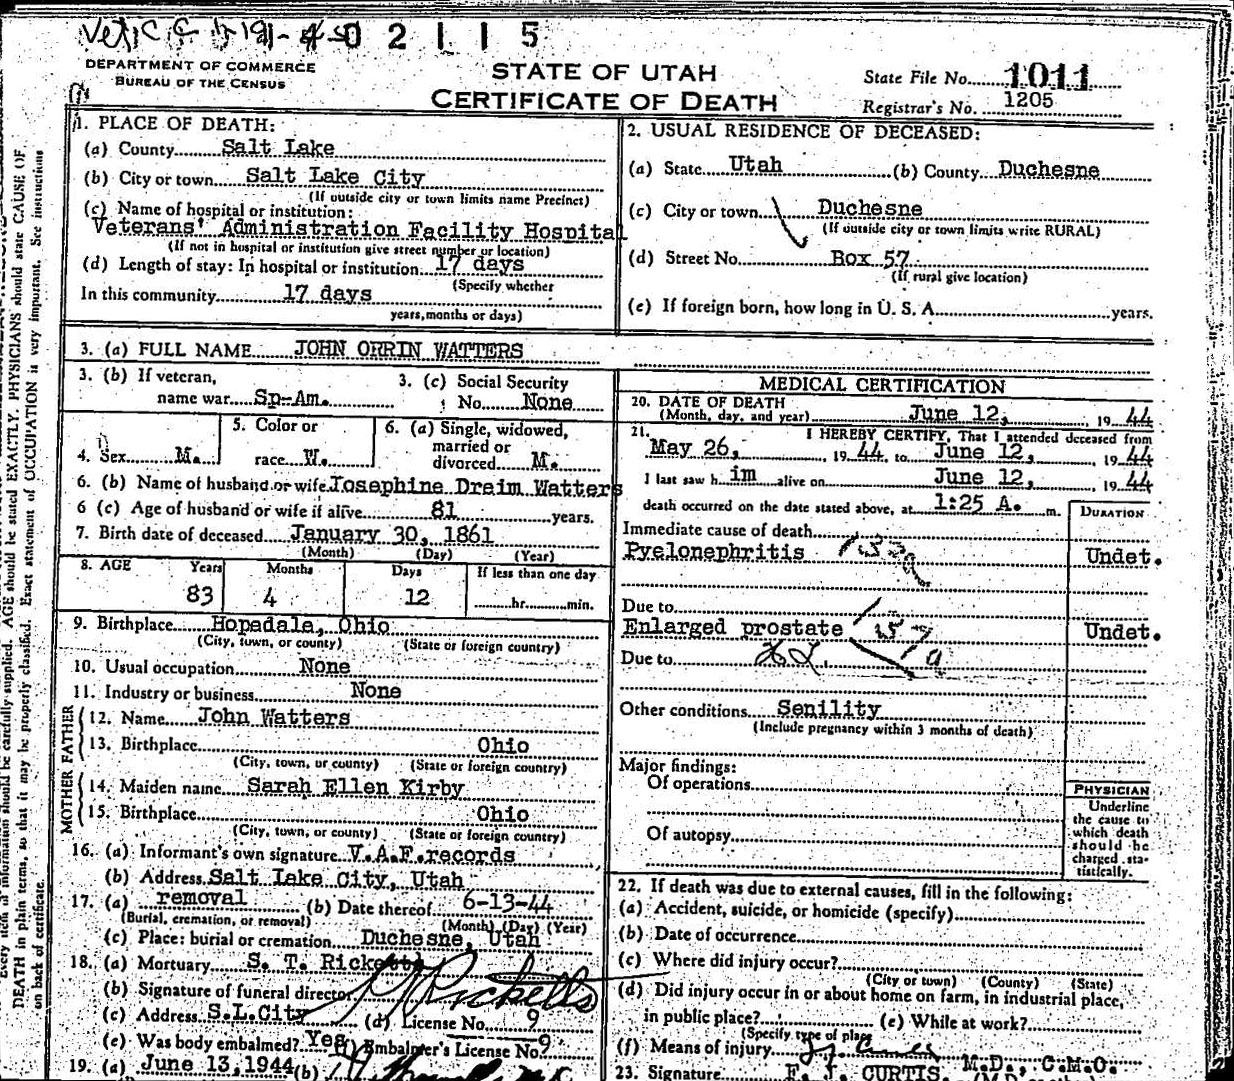 02115
DEPARTMENT OF COMMERCE
BUREAU OF THE CENSUS
STATE OF UTAH
CERTIFICATE OF DEATH
State File No. 1011
Registrar's No. 1205
1. PLACE OF DEATH:
(a) County Salt Lake
(b) City or town Salt Lake City
(If outside city or town limits name Precinct)
(c) Name of hospital or institution:
Veterans' Administration Facility Hospital
(If not in hospital or institution give street number or location)
(d) Length of stay: In hospital or institution 17 days
(Specify whether
In this community 17 days
years, months or days)
2. USUAL RESIDENCE OF DECEASED:
(a) State Utah (b) County Duchesne
(c) City or town Duchesne
(If outside city or town limits write RURAL)
(d) Street No. Box 57
(If rural give location)
(e) If foreign born, how long in U. S. A. years.
3. (a) FULL NAME JOHN ORRIN WATTERS
3. (b) If veteran,
name war Sp-Am.
3. (c) Social Security
No. None
4. Sex M.
5. Color or
race W.
6. (a) Single, widowed,
married or
divorced M.
6. (b) Name of husband or wife Josephine Dreim Watters
6 (c) Age of husband or wife if alive 81 years.
7. Birth date of deceased January 30, 1861
(Month) (Day) (Year)
8. AGE Years Months Days If less than one day
83 4 12 hr. min.
9. Birthplace Hopedale, Ohio
(City, town, or county) (State or foreign country)
10. Usual occupation None
11. Industry or business None
FATHER
12. Name John Watters
13. Birthplace Ohio
(City, town, or county) (State or foreign country)
MOTHER
14. Maiden name Sarah Ellen Kirby
15. Birthplace Ohio
(City, town, or county) (State or foreign country)
16. (a) Informant's own signature V.A.F. records
(b) Address Salt Lake City, Utah
17. (a) removal (b) Date thereof 6-13-44
(Burial, cremation, or removal) (Month) (Day) (Year)
(c) Place: burial or cremation Duchesne, Utah
18. (a) Mortuary S. T. Ricketts
(b) Signature of funeral director Ricketts
(c) Address S.L.City (d) License No. 9
(e) Was body embalmed? Yes (f) Embalmer's License No. 9
19. (a) June 13, 1944 (b)
MEDICAL CERTIFICATION
20. DATE OF DEATH
(Month, day, and year) June 12, 19 44
21. I HEREBY CERTIFY, That I attended deceased from
May 26, 19 44 to June 12, 19 44
I last saw h im alive on June 12, 19 44
death occurred on the date stated above, at 1:25 A. m.
DURATION
Immediate cause of death
Pyelonephritis Undet.
Due to
Enlarged prostate 137a Undet.
Due to
Other conditions Senility
(Include pregnancy within 3 months of death)
Major findings:
Of operations
Of autopsy
PHYSICIAN
Underline
the cause to
which death
should be
charged sta-
tistically.
22. If death was due to external causes, fill in the following:
(a) Accident, suicide, or homicide (specify)
(b) Date of occurrence
(c) Where did injury occur?
(City or town) (County) (State)
(d) Did injury occur in or about home on farm, in industrial place,
in public place? (e) While at work?
(Specify type of place)
(f) Means of injury
23. Signature F. J. CURTIS, M.D., C.M.O.
Every item of information should be carefully supplied. AGE should be stated EXACTLY. PHYSICIANS should state CAUSE OF
DEATH in plain terms, so that it may be properly classified. Exact statement of OCCUPATION is very important. See instructions
on back of certificate.